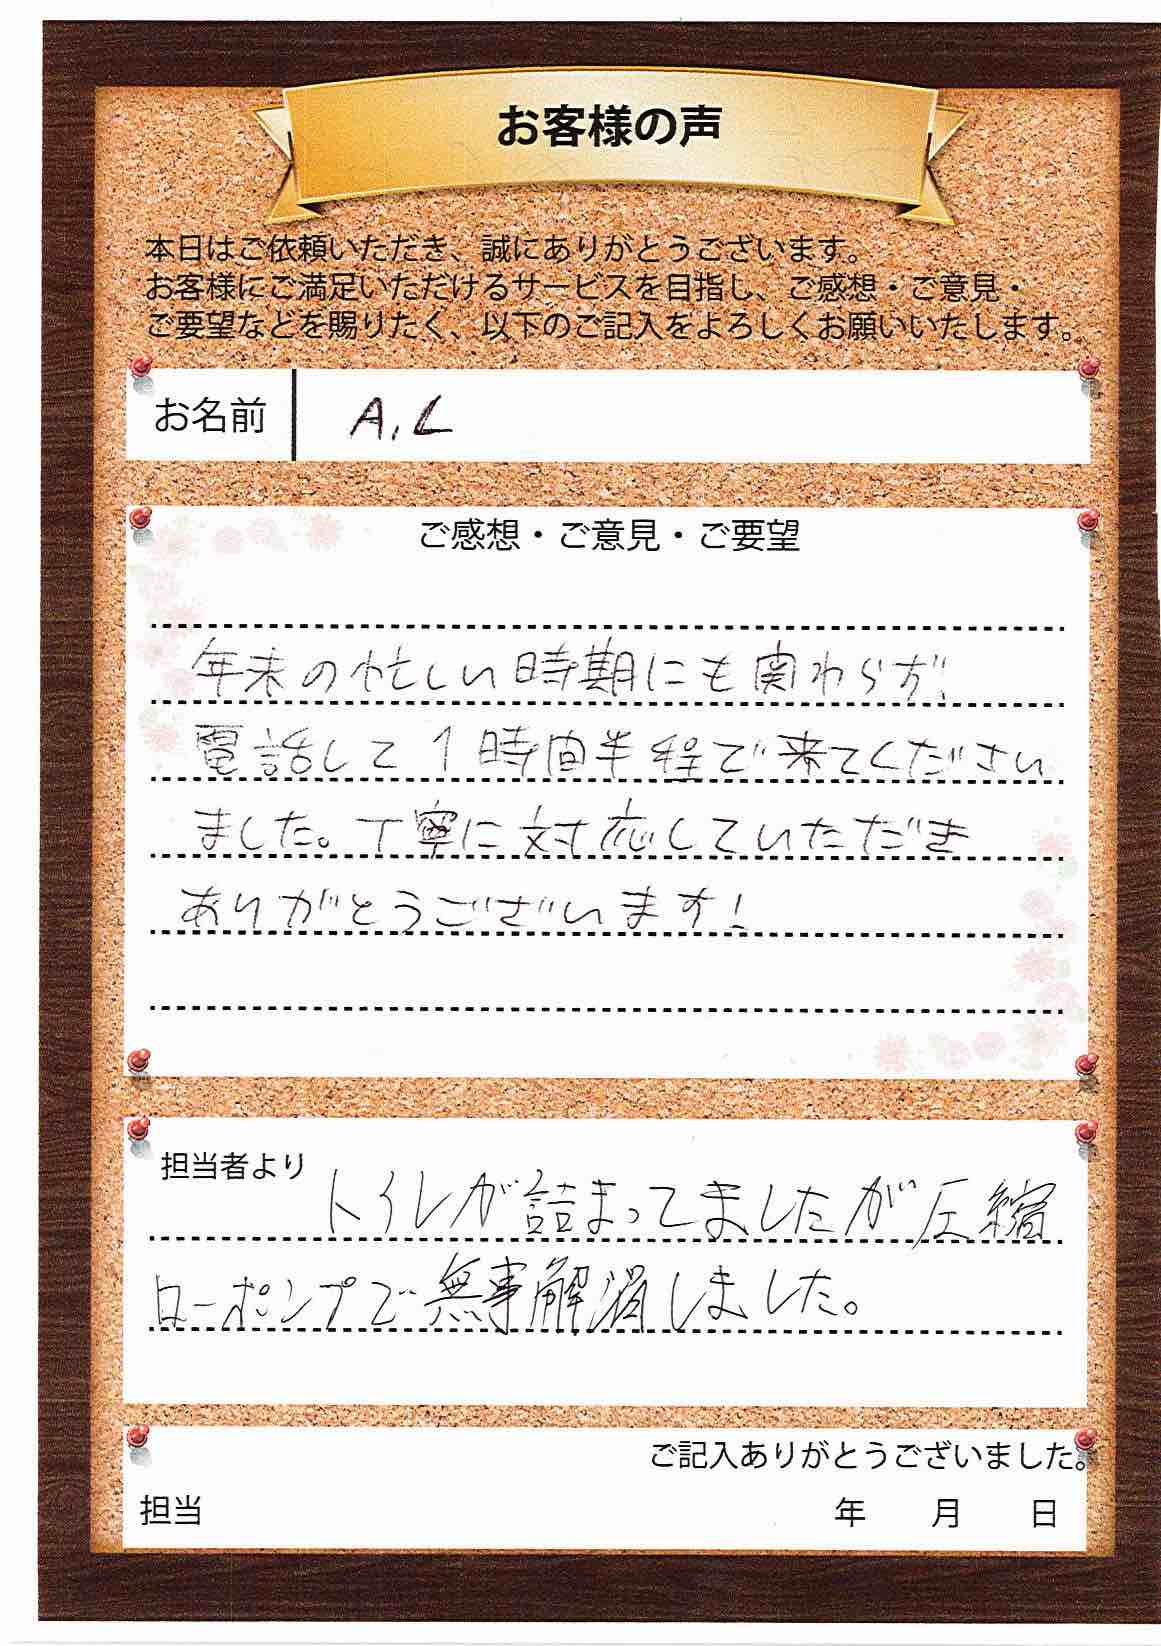 お客様の声
本日はご依頼いただき、誠にありがとうございます。
お客様にご満足いただけるサービスを目指し、ご感想・ご意見・
ご要望などを賜りたく、以下のご記入をよろしくお願いいたします。
お名前 A.L
ご感想・ご意見・ご要望
年末の忙しい時期にも関わらず、
電話して1時間半程で来てください
ました。丁寧に対応していただき
ありがとうございます!
担当者より トイレが詰まってましたが圧縮
ローポンプで無事解消しました。
ご記入ありがとうございました。
担当 年 月 日